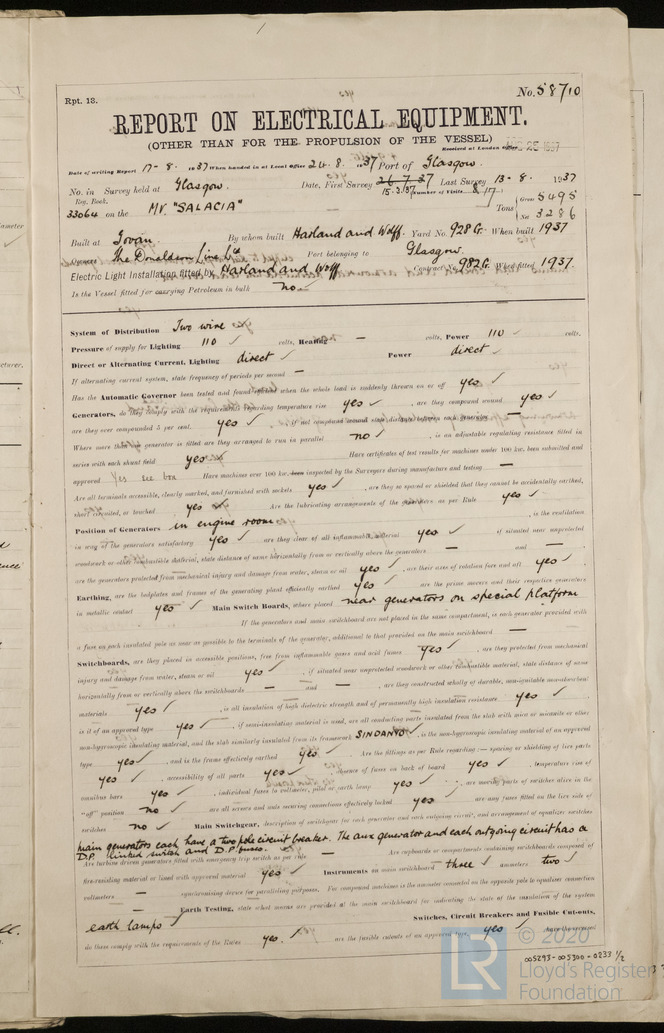 Rpt. 13.
No. 58710
REPORT ON ELECTRICAL EQUIPMENT.
(OTHER THAN FOR THE PROPULSION OF THE VESSEL)
Received at London Office
Date of writing Report 17-8. 1937 When handed in at Local Office 24.8. 37 Port of Glasgow.
No. in Survey held at Glasgow. Date, First Survey Last Survey 13-8. 1937
Reg. Book.
33064 on the MV. "SALACIA"
Tons Gross 5495
Net 3286
Built at Govan By whom built Harland and Wolff Yard No. 928G. When built 1937
Owners The Donaldson Line Ltd Port belonging to Glasgow.
Electric Light Installation fitted by Harland and Wolff Contract No. 982G. When fitted 1937.
Is the Vessel fitted for carrying Petroleum in bulk no
System of Distribution Two wire
Pressure of supply for Lighting 110 volts, Heating — volts, Power 110 volts.
Direct or Alternating Current, Lighting direct Power direct
If alternating current system, state frequency of periods per second —
Has the Automatic Governor been tested and found efficient when the whole load is suddenly thrown on or off yes
Generators, do they comply with the requirements regarding temperature rise yes, are they compound wound yes
are they over compounded 5 per cent. yes, if not compound wound state distance between each generator —
Where more than one generator is fitted are they arranged to run in parallel no, is an adjustable regulating resistance fitted in
series with each shunt field yes Have certificates of test results for machines under 100 kw. been submitted and
approved Yes see box Have machines over 100 kw. been inspected by the Surveyors during manufacture and testing —
Are all terminals accessible, clearly marked, and furnished with sockets yes, are they so spaced or shielded that they cannot be accidentally earthed,
short circuited, or touched yes Are the lubricating arrangements of the generators as per Rule yes
Position of Generators in engine room, is the ventilation
in way of the generators satisfactory yes, are they clear of all inflammable material yes, if situated near unprotected
woodwork or other combustible material, state distance of same horizontally from or vertically above the generators — and —
are the generators protected from mechanical injury and damage from water, steam or oil yes, are their axes of rotation fore and aft yes
Earthing, are the bedplates and frames of the generating plant efficiently earthed yes are the prime movers and their respective generators
in metallic contact yes Main Switch Boards, where placed near generators on special platform
If the generators and main switchboard are not placed in the same compartment, is each generator provided with
a fuse on each insulated pole as near as possible to the terminals of the generator, additional to that provided on the main switchboard —
Switchboards, are they placed in accessible positions, free from inflammable gases and acid fumes yes, are they protected from mechanical
injury and damage from water, steam or oil yes, if situated near unprotected woodwork or other combustible material, state distance of same
horizontally from or vertically above the switchboards — and —, are they constructed wholly of durable, non-ignitable non-absorbent
materials yes, is all insulation of high dielectric strength and of permanently high insulation resistance yes
is it of an approved type yes, if semi-insulating material is used, are all conducting parts insulated from the slab with mica or micanite or other
non-hygroscopic insulating material, and the slab similarly insulated from its framework SINDANYO, is the non-hygroscopic insulating material of an approved
type yes, and is the frame effectively earthed yes Are the fittings as per Rule regarding :— spacing or shielding of live parts
yes, accessibility of all parts yes, absence of fuses on back of board yes, temperature rise of
omnibus bars yes, individual fuses to voltmeter, pilot or earth lamp yes, are moving parts of switches alive in the
"off" position no are all screws and nuts securing connections effectively locked yes are any fuses fitted on the live side of
switches no Main Switchgear, description of switchgear for each generator and each outgoing circuit, and arrangement of equalizer switches
main generators each have a two pole circuit breaker. The aux generator and each outgoing circuit has a
D.P. linked switch and D.P. fuses. Are cupboards or compartments containing switchboards composed of
Are turbine driven generators fitted with emergency trip switch as per rule —
fire-resisting material or lined with approved material yes Instruments on main switchboard three ammeters two
voltmeters — synchronising device for paralleling purposes. For compound machines is the ammeter connected on the opposite pole to equaliser connection
— Earth Testing, state what means are provided at the main switchboard for indicating the state of the insulation of the system
earth lamps Switches, Circuit Breakers and Fusible Cut-outs,
do these comply with the requirements of the Rules yes. are the fusible cutouts of an approved type, yes
© 2020
LR
Lloyd's Register
Foundation
005293-005300-0233 1/2